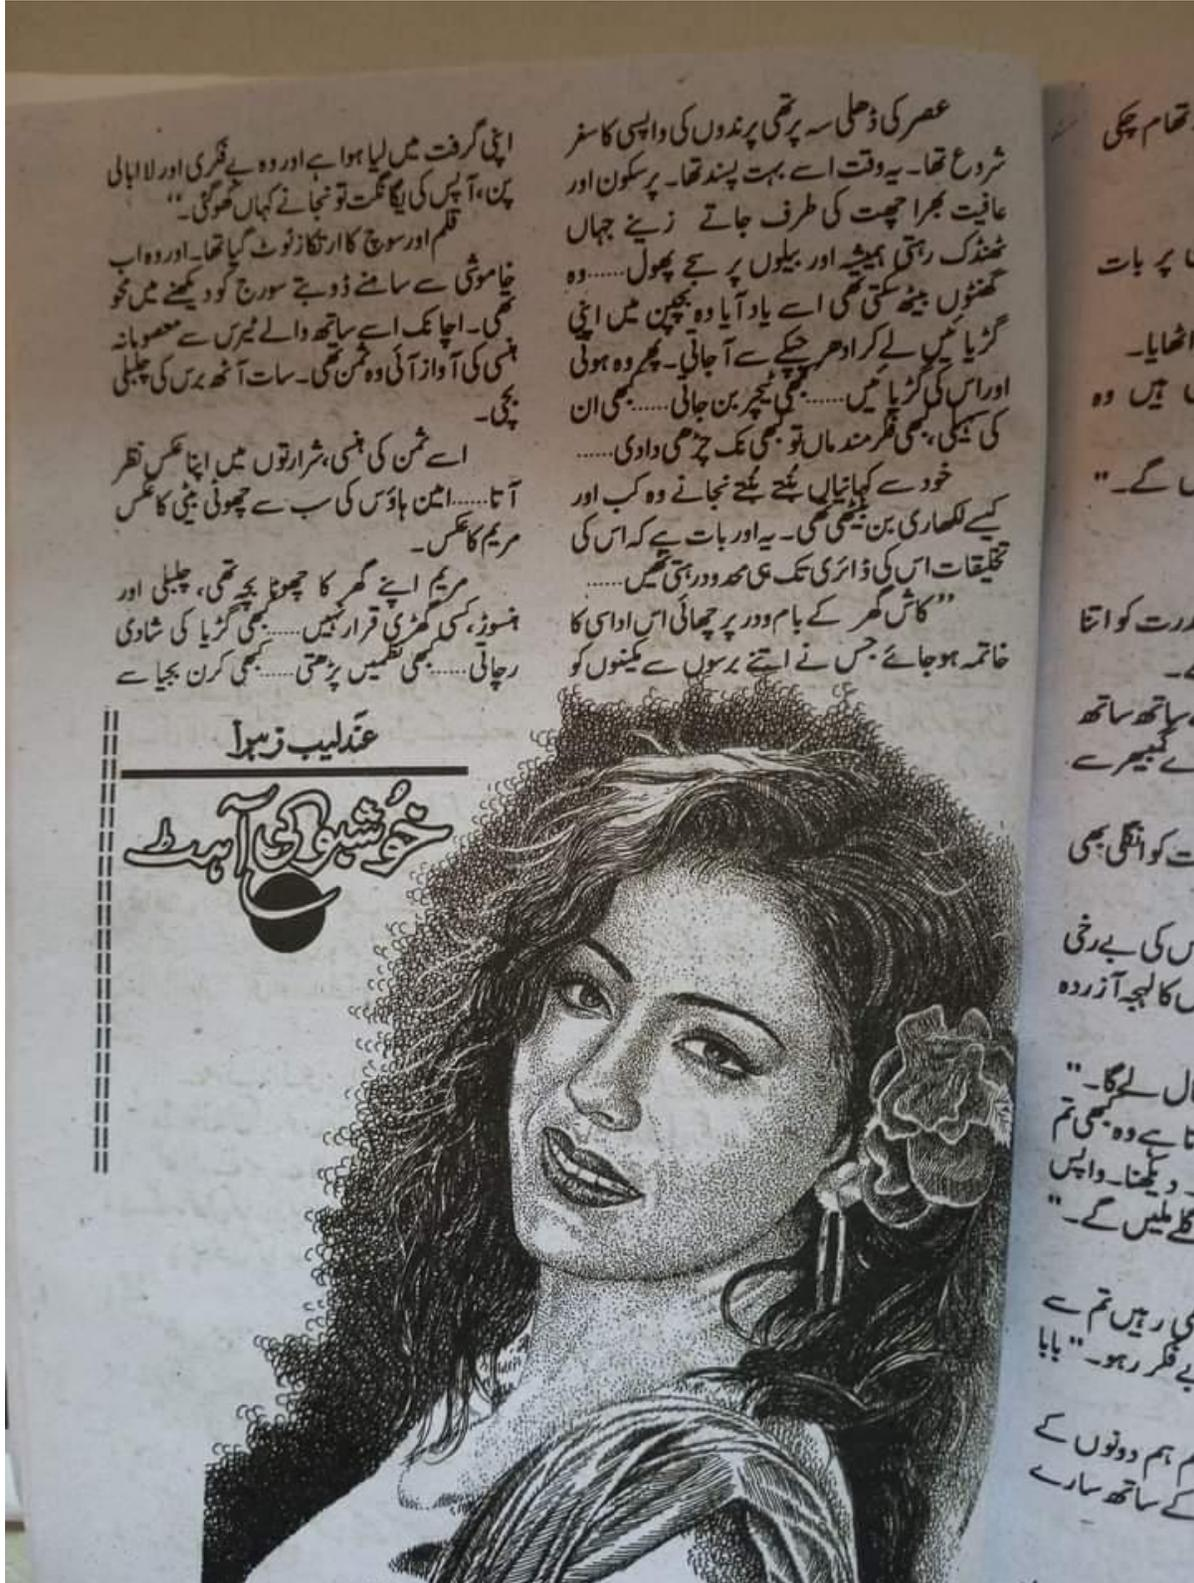 عصر کی ڈھلی سہ پر تھی پرندوں کی واپسی کا سفر
شروع تھا۔ یہ وقت اسے بہت پسند تھا۔ پرسکون اور
عافیت بھرا چھت کی طرف جاتے زینے جہاں
ٹھنڈک رہتی ہمیشہ اور بیلوں پر سجے پھول......وہ
گھنٹوں بیٹھ سکتی تھی اسے یاد آیا وہ بچپن میں اپنی
گڑیائیں لے کر ادھر چپکے سے آجاتی۔ پھر وہ ہوتی
اور اس کی گڑیائیں......کبھی ٹیچر بن جاتی......کبھی ان
کی سہیلی، کبھی فکر مند ماں تو کبھی تک چڑھی دادی......
خود سے کہانیاں بُنتے بُنتے نجانے وہ کب اور
کیسے لکھاری بن بیٹھی تھی۔ یہ اور بات ہے کہ اس کی
تخلیقات اس کی ڈائری تک ہی محدود رہتی تھیں......
”کاش گھر کے بام و در پر چھائی اس اداسی کا
خاتمہ ہوجائے جس نے اتنے برسوں سے مکینوں کو
اپنی گرفت میں لیا ہوا ہے اور وہ بے فکری اور لا ابالی
پن، آپس کی یگانگت تو نجانے کہاں کھو گئی۔“
قلم اور سوچ کا ارتکاز ٹوٹ گیا تھا۔ اور وہ اب
خاموشی سے سامنے ڈوبتے سورج کو دیکھنے میں محو
تھی۔ اچانک اسے ساتھ والے ٹیرس سے معصومانہ
ہنسی کی آواز آئی وہ ثمن تھی۔ سات آٹھ برس کی چلبلی
بچی۔
اسے ثمن کی ہنسی، شرارتوں میں اپنا عکس نظر
آتا......امین ہاؤس کی سب سے چھوٹی بیٹی کا عکس
مریم کا عکس۔
مریم اپنے گھر کا چھوٹا بچہ تھی، چلبلی اور
ہنسوڑ، کسی گھڑی قرار نہیں......کبھی گڑیا کی شادی
رچاتی......کبھی نظمیں پڑھتی......کبھی کرن بجیا سے
عندلیب زہرا
خوشبو کی آہٹ
تھام چکی
پر بات
اٹھایا۔
ہیں وہ
گے۔“
درت کو اتنا
ساتھ ساتھ
گمبھیر سے
کو انگلی بھی
س کی بے رخی
کا لہجہ آزردہ
لے گا۔“
ہے وہ کبھی تم
دیکھنا۔ واپس
گلے ملیں گے۔“
رہیں تم سے
بے فکر رہو۔“ بابا
ہم دونوں کے
کے ساتھ سارے